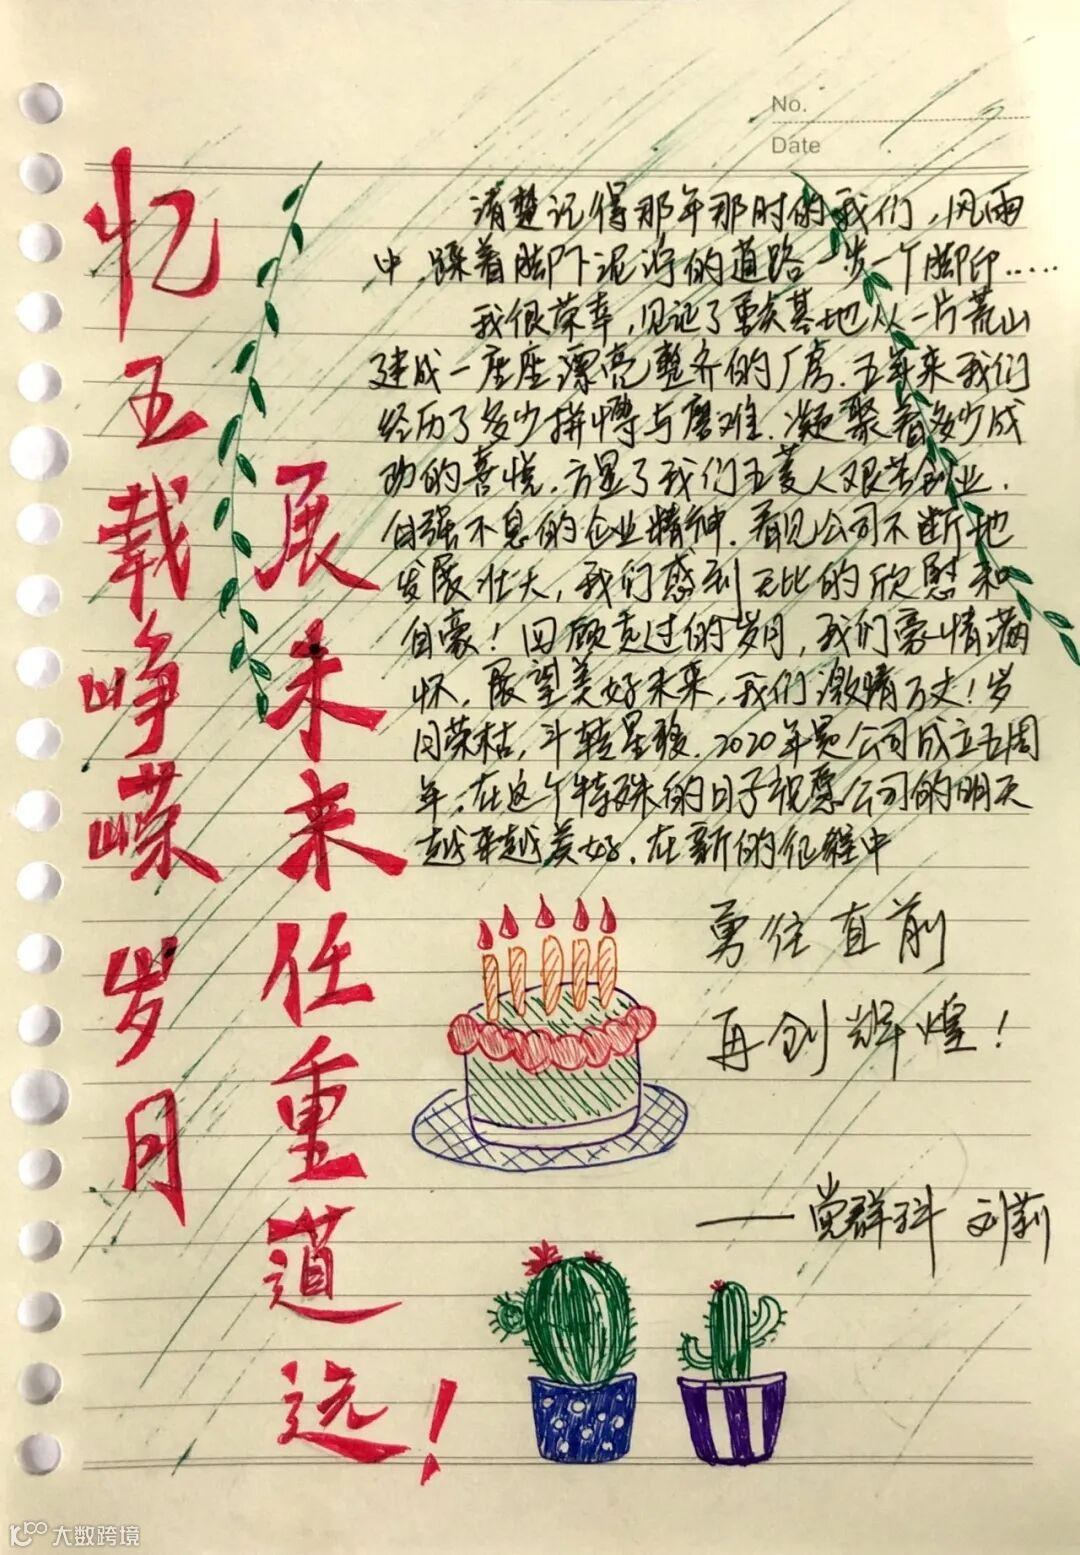 No.
Date
忆五载峥嵘岁月
展未来任重道远！
清楚记得那年那时的我们，风雨
中，踩着脚下泥泞的道路一步一个脚印……
我很荣幸，见证了重庆基地从一片荒山
建成一座座漂亮整齐的厂房．五年来我们
经历了多少拼搏与磨难．凝聚着多少成
功的喜悦．方显了我们五菱人艰苦创业．
自强不息的企业精神．看见公司不断地
发展壮大，我们感到无比的欣慰和
自豪！回顾走过的岁月，我们豪情满
怀，展望美好未来，我们激情万丈！岁
月荣枯，斗转星移．2020年是公司成立五周
年，在这个特殊的日子祝愿公司的明天
越来越美好．在新的征程中
勇往直前
再创辉煌！
——党群科 刘莉
大数跨境